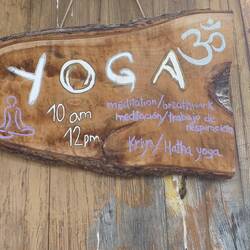 YOGA ॐ
10 am
12pm
meditation/breathwork
meditación/trabajo de
respiración
Kriya/Hatha yoga